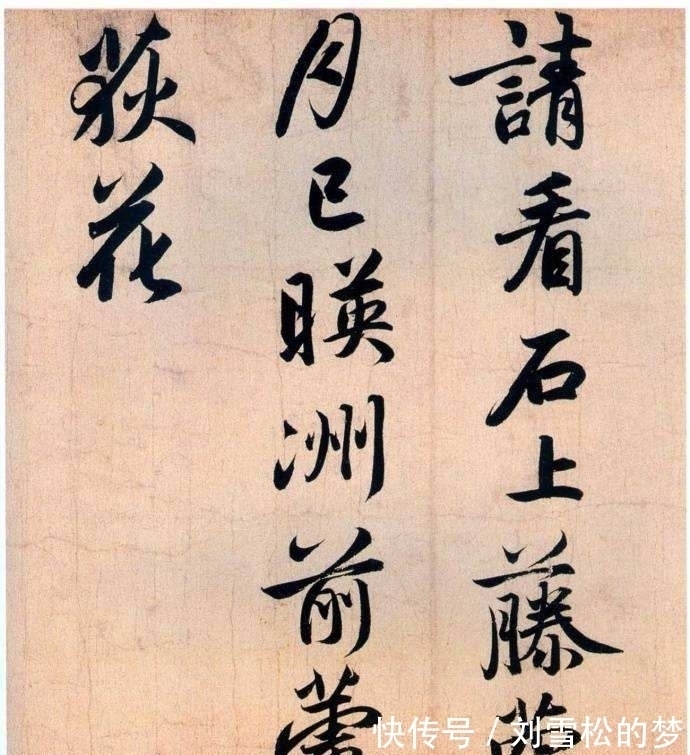 請看石上藤蘿
月已暎洲前蘆
荻花
快传号 / 刘雪松的梦